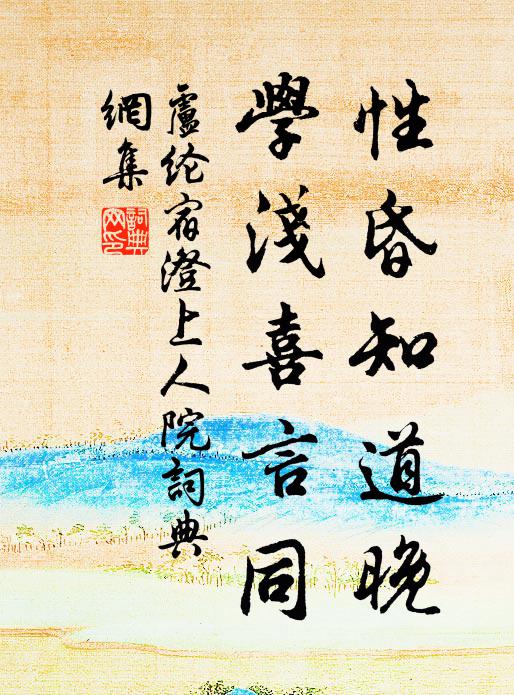 性昏知道晚
學淺喜言同
盧纶宿澄上人院詞典
網集
詞典
网印